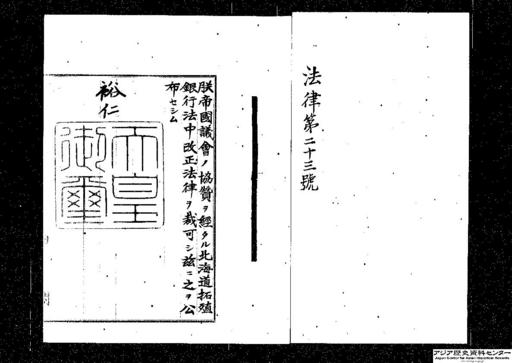 法律第二十三號
朕帝國議會ノ協贊ヲ經タル北海道拓殖
銀行法中改正法律ヲ裁可シ茲ニ之ヲ公
布セシム
裕仁
天皇
御璽
アジア歴史資料センター
Japan Center for Asian Historical Records